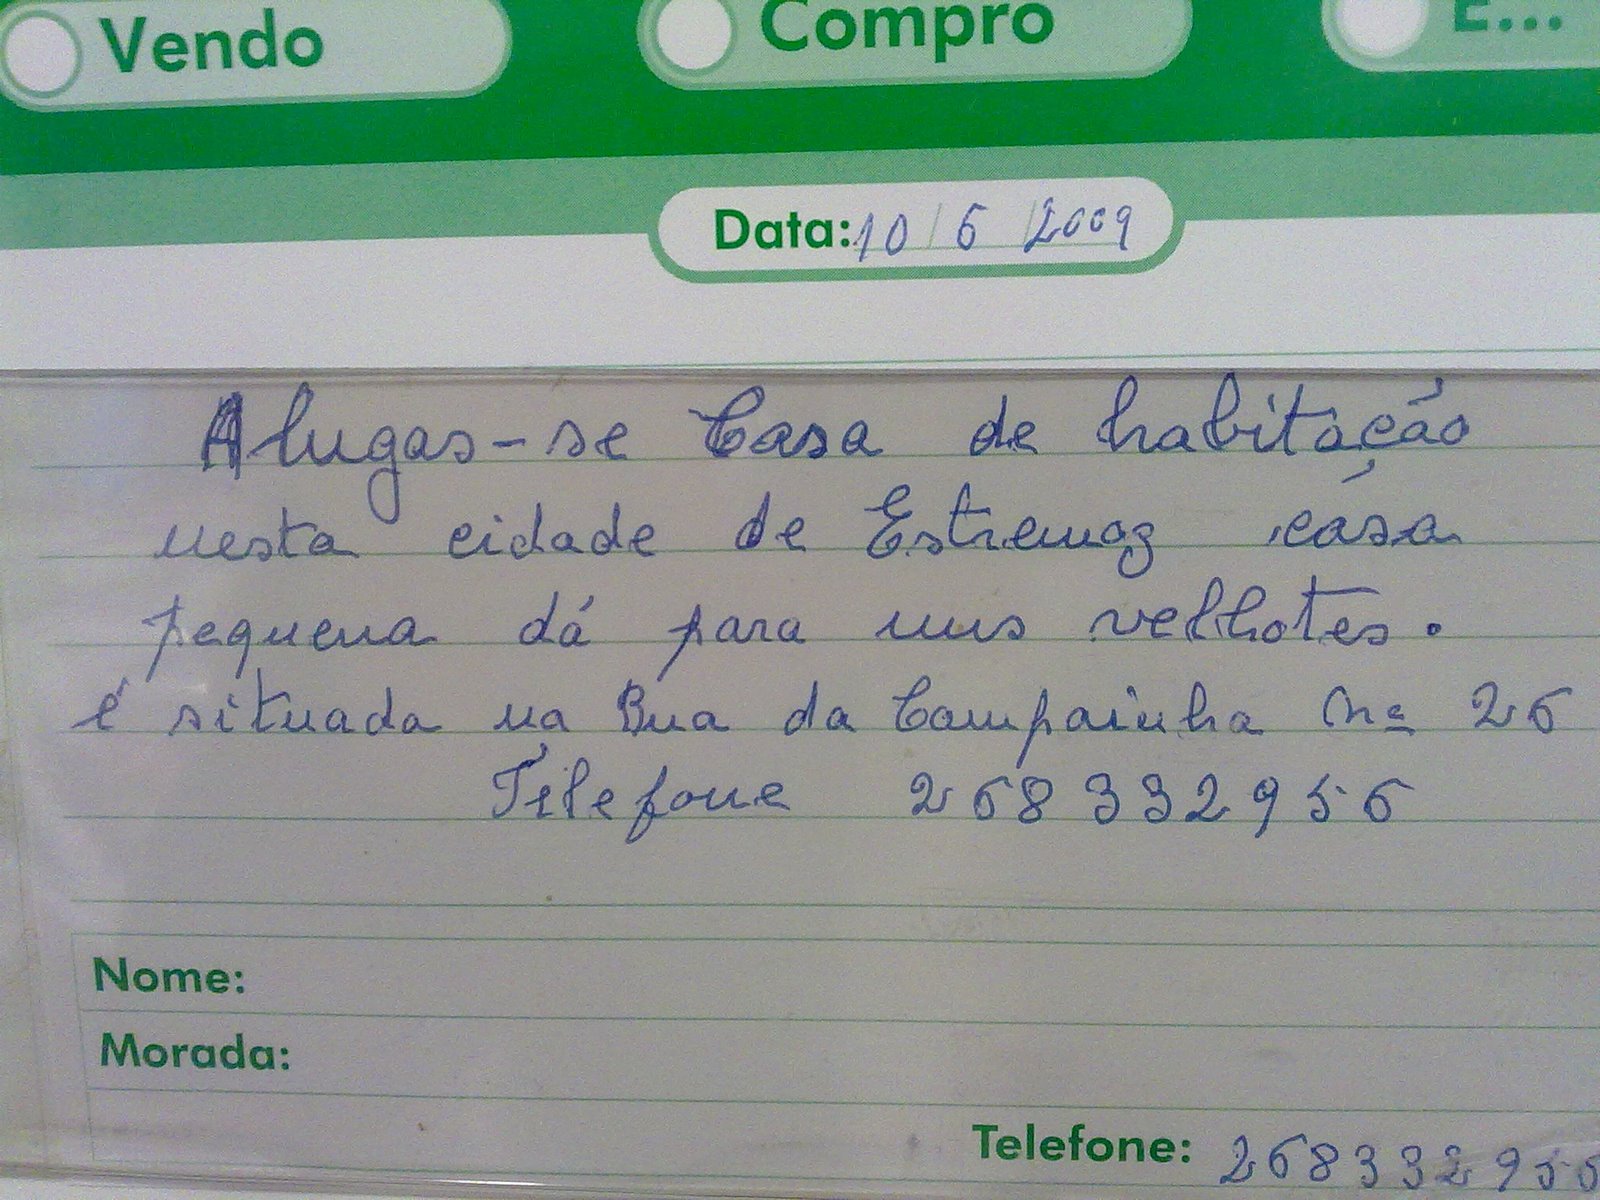 Vendo Compro E...
Data: 10/6/2009
Alugas-se Casa de habitação
nesta cidade de Estremoz cása
pequena dá para uns velhotes.
é situada na Rua da Campainha nº 26
Télefone 268332956
Nome:
Morada:
Telefone: 268332956